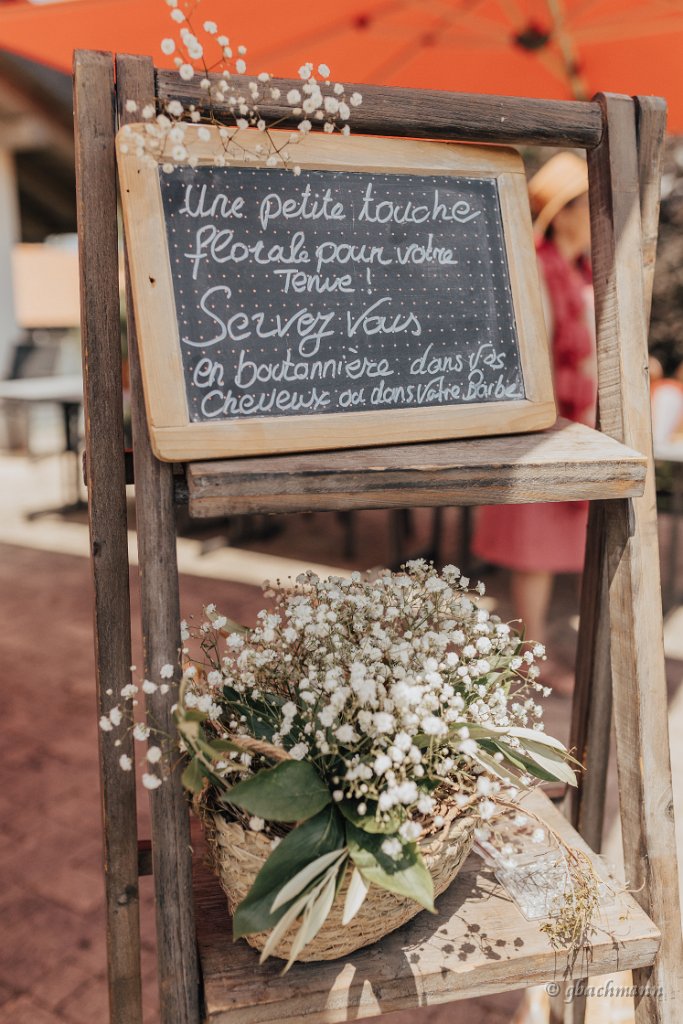 Une petite touche
florale pour votre
Tenue !
Servez vous
en boutonnière dans vos
Cheveux ou dans votre Barbe
© gbachmann